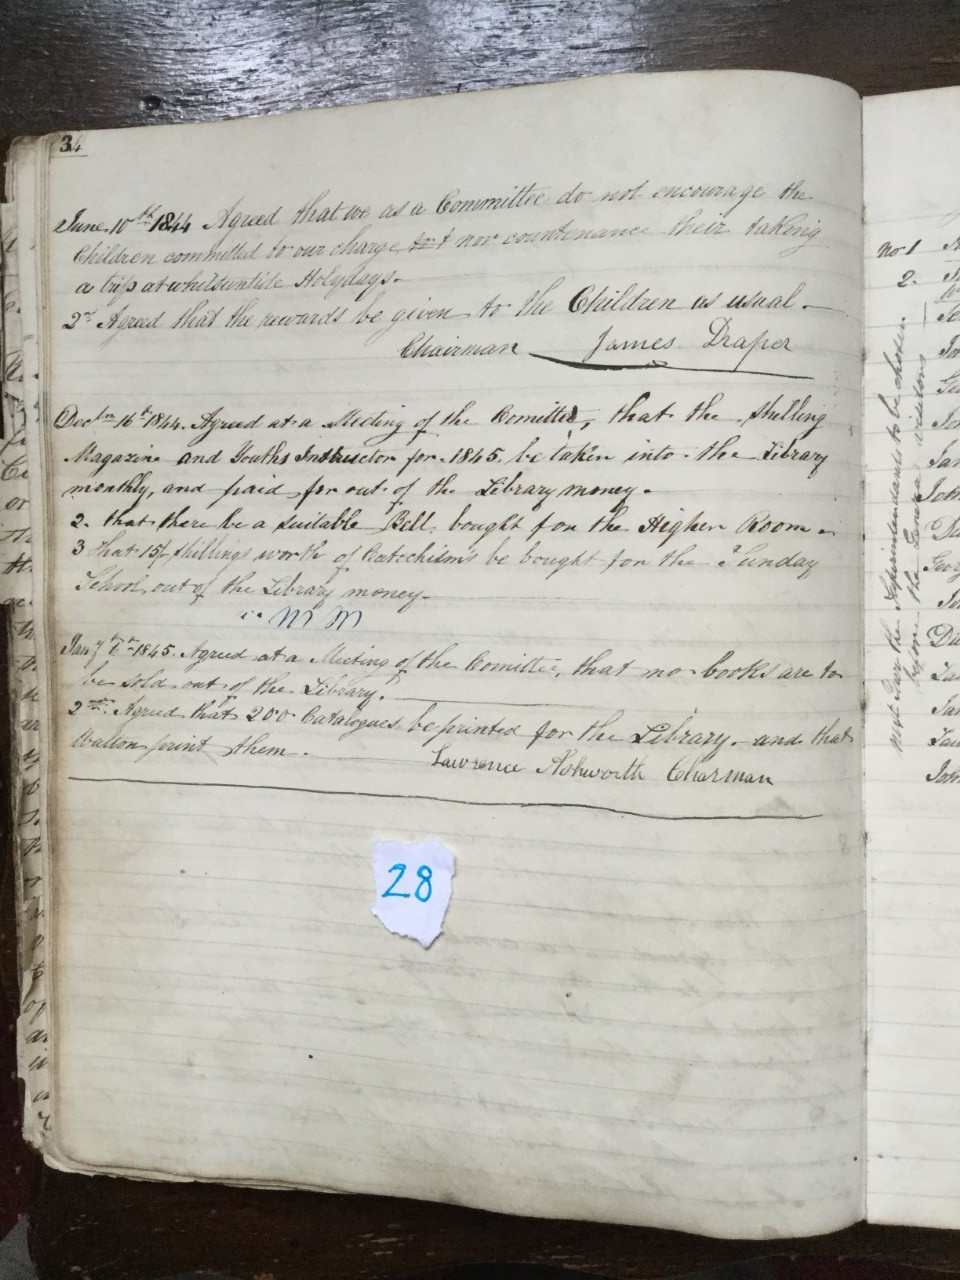 34
June 10th 1844 Agreed that we as a Committee do not encourage the
Children committed to our charge nor countenance their taking
a trip at whitsuntide Holydays.
2nd Agreed that the rewards be given to the Children as usual.
Chairman James Draper
Decbr 16th 1844. Agreed at a Meeting of the Comitted, that the Shilling
Magazine and Youths Instructor for 1845, be taken into the Library
monthly, and paid for out of the Library money.
2. that there be a suitable Bell bought for the Higher Room.
3 That 15/ shillings worth of Catechisms be bought for the Sunday
School, out of the Library money.
M M
Jany 1845. Agreed at a Meeting of the Comittee, that no books are to
be sold out of the Library.
2nd. Agreed that 200 Catalogues be printed for the Library. and that
Walton print them.
Lawrence Ashworth Charman
28
No 1
2.
next Jany the Superintendants to be chosen
before the General visitors